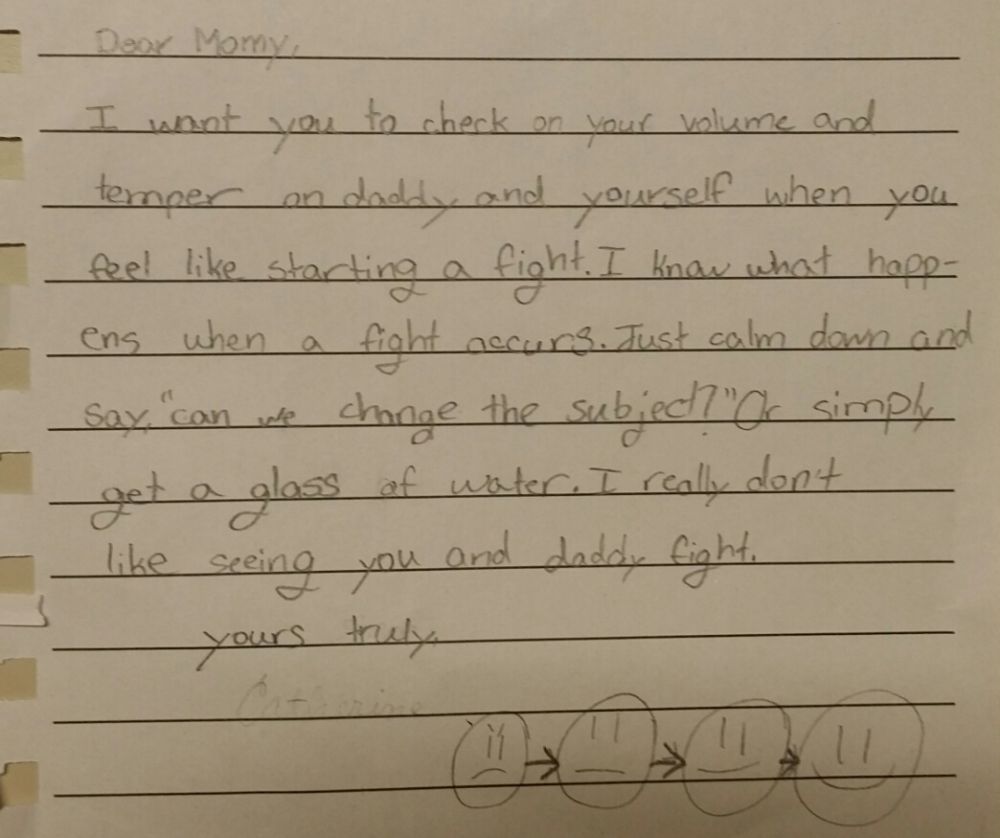 Dear Momy,
I want you to check on your volume and
temper on daddy and yourself when you
feel like starting a fight. I know what happ-
ens when a fight occurs. Just calm down and
say, "can we change the subject?" Or simply
get a glass of water. I really don't
like seeing you and daddy fight.
yours truly,
Catherine